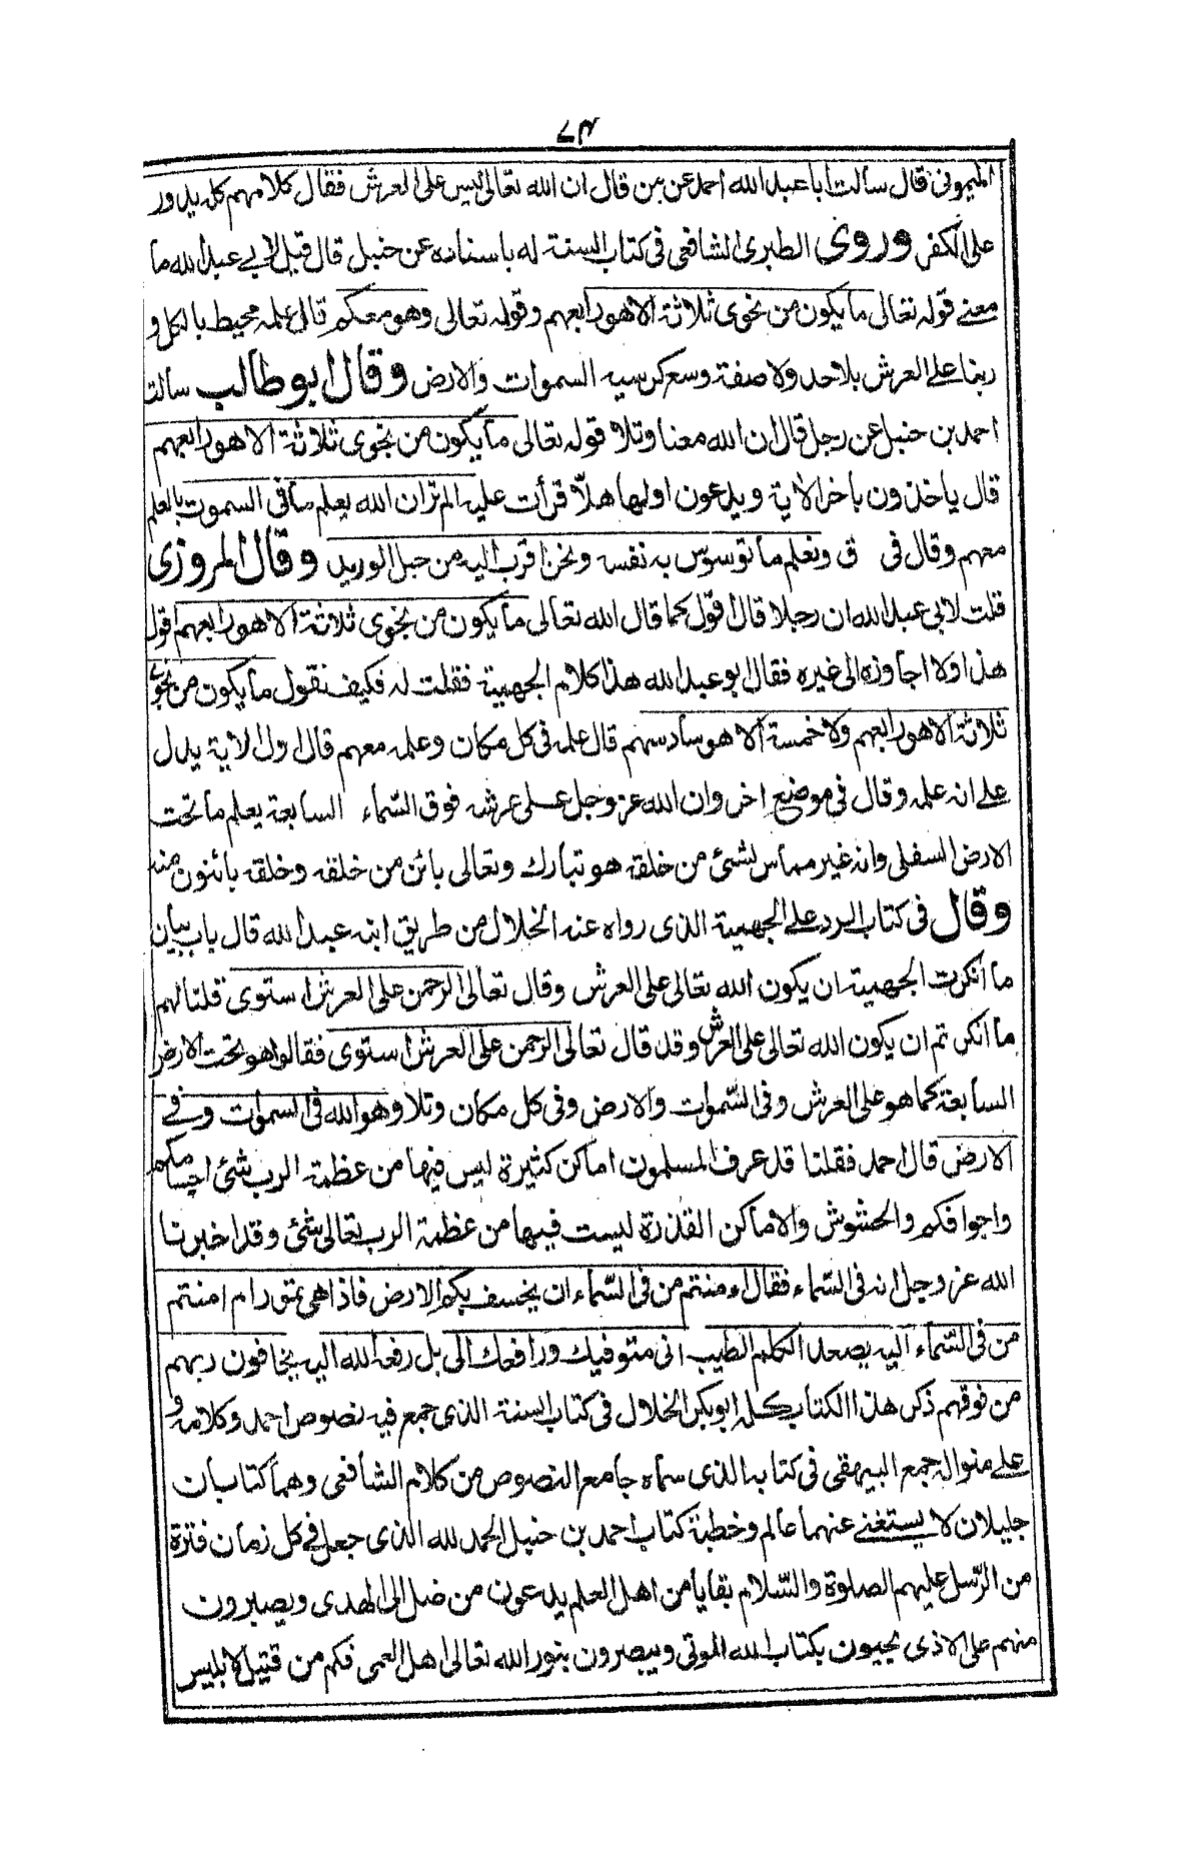 ٧٤
الميمونى قال سألت ابا عبد الله احمد عن من قال ان الله تعالى ليس على العرش فقال كلامهم كله يدور
على الكفر وروى الطبرى الشافعى فى كتاب السنة له باسناده عن حنبل قال قيل لابي عبد الله ما
معنے قوله تعالى ما يكون من نجوى ثلاثة الا هو رابعهم وقوله تعالى وهو معكم قال علمه محيط بالكل و
ربنا على العرش بلا حد ولا صفة وسع كرسيه السموات والارض وقال ابو طالب سالت
احمد بن حنبل عن رجل قال ان الله معنا وتلا قوله تعالى ما يكون من نجوى ثلاثة الا هو رابعهم
قال ياخذون باخر الاية ويدعون اولها هلّا قرأت عليه الم تر ان الله يعلم ما فى السموت بالعلم
معهم وقال فى ق ونعلم ما توسوس به نفسه ونحن اقرب اليه من حبل الوريد وقال المروزى
قلت لابى عبد الله ان رجلا قال اقول كما قال الله تعالى ما يكون من نجوى ثلاثة الا هو رابعهم اقول
هذا ولا اجاوزه الى غيره فقال ابو عبد الله هذا كلام الجهمية فقلت له فكيف نقول ما يكون من نجوى
ثلاثة الا هو رابعهم ولا خمسة الا هو سادسهم قال علمه فى كل مكان وعلمه معهم قال اول الاية يدل
على انه علمه وقال فى موضع اخر وان الله عز وجل على عرشه فوق السّماء السابعة يعلم ما تحت
الارض السفلى وانه غير مماس لشئ من خلقه هو تبارك وتعالى بائن من خلقه وخلقه بائنون منه
وقال فى كتاب الرد على الجهمية الذى رواه عنه الخلال من طريق ابنه عبد الله قال باب بيان
ما انكرت الجهمية ان يكون الله تعالى على العرش وقال تعالى الرحمن على العرش استوى قلنا لهم
ما انكرتم ان يكون الله تعالى على العرش وقد قال تعالى الرحمن على العرش استوى فقالوا هو تحت الارض
السابعة كما هو على العرش وفى السّموات والارض وفى كل مكان وتلا وهو الله فى السموات وفے
الارض قال احمد فقلنا قد عرف المسلمون اماكن كثيرة ليس فيها من عظمة الرب شئ اجسامكم
واجوافكم والحشوش والاماكن القذرة ليست فيها من عظمة الرب تعالى شئ وقد اخبرنا
الله عز وجل انه فى السّماء فقال ءامنتم من فى السّماء ان يخسف بكم الارض فاذا هى تمور ام امنتم
من فى السّماء اليه يصعد الكلم الطيب انى متوفيك ورافعك الى بل رفعه الله اليه يخافون ربهم
من فوقهم ذكر هذا الكتاب كله ابو بكر الخلال فى كتاب السنة الذى جمع فيه نصوص احمد وكلامه و
على منواله جمع البيهقى فى كتابه الذى سماه جامع النصوص من كلام الشافعى وهما كتابان
جليلان لا يستغنے عنهما عالم وخطبة كتاب احمد بن حنبل الحمد لله الذى جعل فے كل زمان فترة
من الرّسل عليهم الصلوة والسّلام بقايا من اهل العلم يدعون من ضل الى الهدى ويصبرون
منهم على الاذى يحيون بكتاب الله الموتى ويبصرون بنور الله تعالى اهل العمى فكم من قتيل لابليس